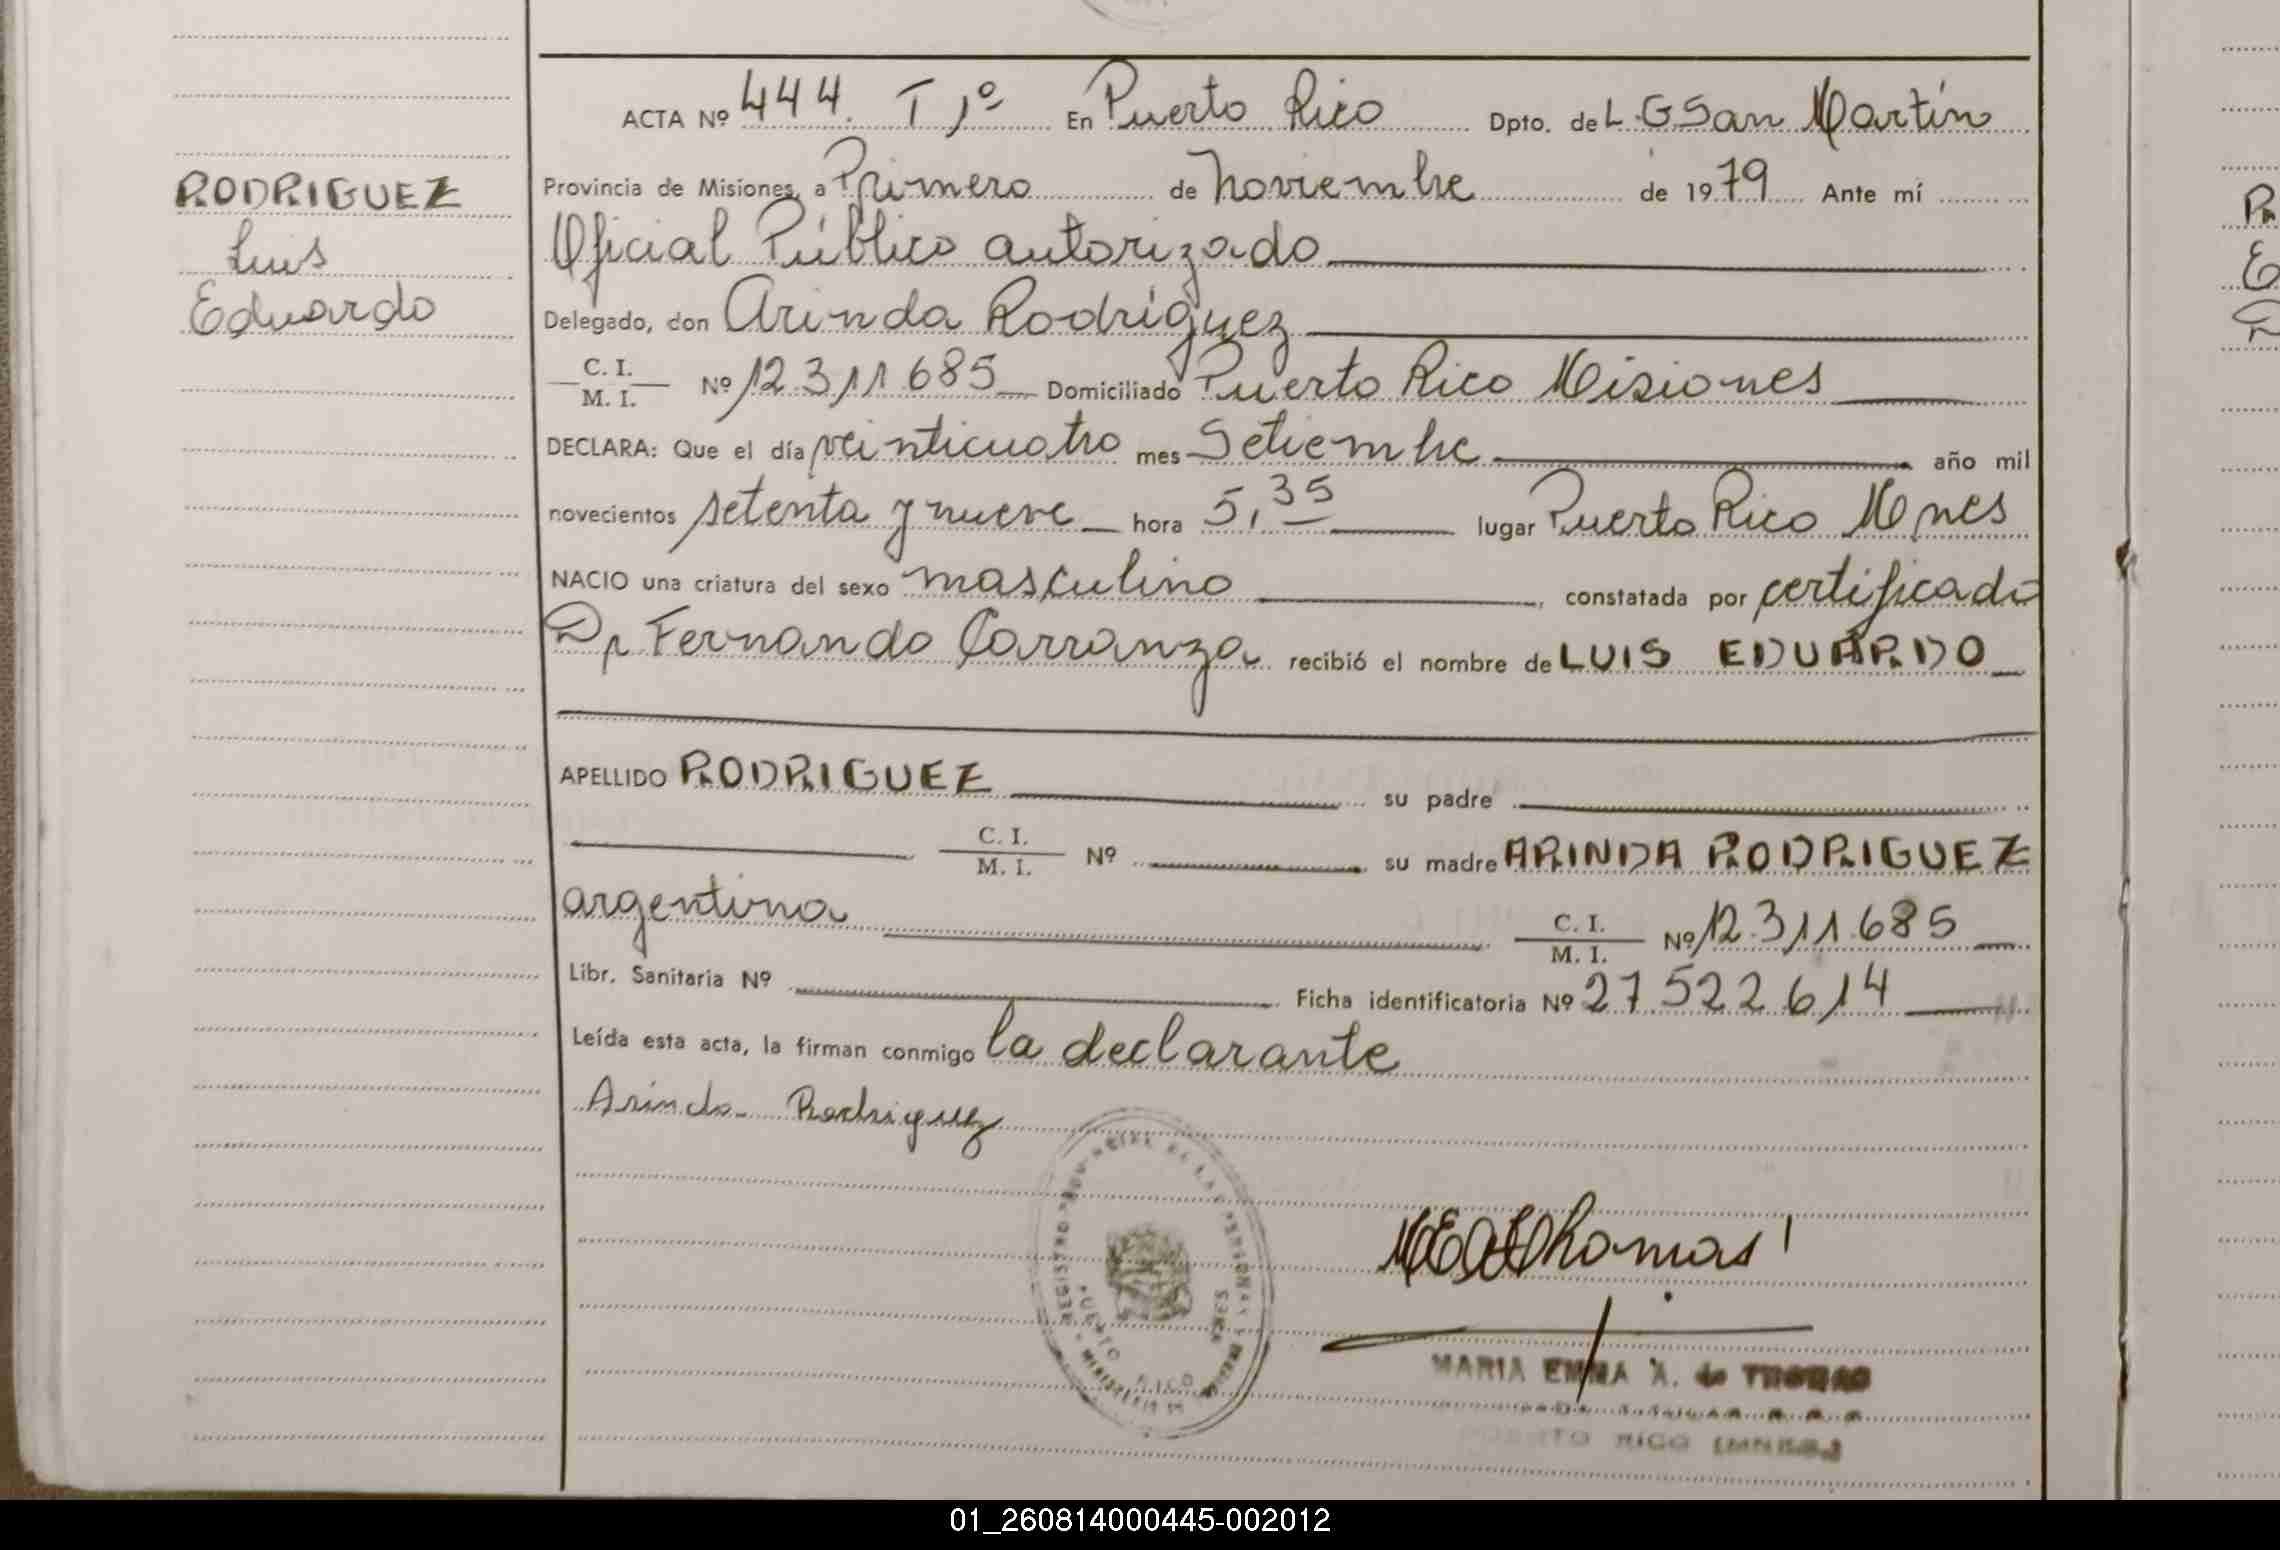 RODRIGUEZ
Luis
Eduardo
ACTA Nº 444. T 1º En Puerto Rico Dpto. de L.G San Martín
Provincia de Misiones, a Primero de noviembre de 1979 Ante mí
Oficial Público autorizado
Delegado, don Arinda Rodríguez
C. I.
M. I. Nº 12.311.685 Domiciliado Puerto Rico Misiones
DECLARA: Que el día veinticuatro mes Setiembre año mil
novecientos setenta y nueve hora 5,35 lugar Puerto Rico Mnes
NACIO una criatura del sexo masculino, constatada por certificado
Dr Fernando Carranza recibió el nombre de LUIS EDUARDO
APELLIDO RODRIGUEZ su padre
C. I.
M. I. Nº su madre ARINDA RODRIGUEZ
argentina C. I.
M. I. Nº 12.311.685
Libr. Sanitaria Nº Ficha identificatoria Nº 27522614
Leída esta acta, la firman conmigo la declarante
Arinda Rodriguez
REGISTRO PROVINCIAL DE LAS PERSONAS
PUERTO RICO
MARIA EMMA A. de THOMAS
PUERTO RICO (MNES.)
P
E
01_260814000445-002012